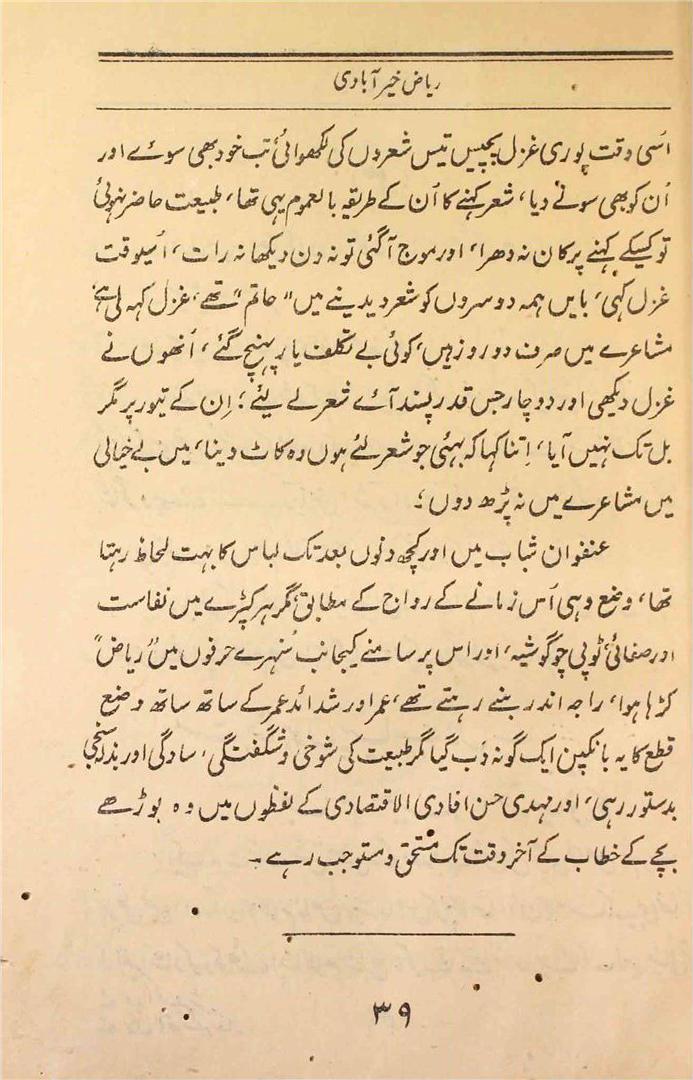 ریاض خیرآبادی
اُسی وقت پوری غزل پچیس تیس شعروں کی لکھوائی تب خود بھی سوئے اور
اُن کو بھی سونے دیا، شعر کہنے کا اُن کے طریقہ بالعموم یہی تھا، طبیعت حاضر نہوئی
تو کسیکے کہنے پر کان نہ دھرا، اور موج آگئی تو نہ دن دیکھا نہ رات، اُسیوقت
غزل کہی، بایں ہمہ دوسروں کو شعر دیدینے میں "حاتم" تھے، غزل کہہ لی ہے
مشاعرے میں صرف دو روز ہیں، کوئی بے تکلف یار پہنچ گئے، اُنھوں نے
غزل دیکھی اور دو چار جس قدر پسند آئے شعر لے لیئے؛ اِن کے تیور پر مگر
بل تک نہیں آیا، اِتنا کہا کہ بھئی جو شعر لئے ہوں وہ کاٹ دینا، میں بے خیالی
میں مشاعرے میں نہ پڑھ دوں؛
عنفوان شباب میں اور کچھ دنوں بعد تک لباس کا بہت لحاظ رہتا
تھا، وضع وہی اُس زمانے کے رواج کے مطابق، مگر ہر کپڑے میں نفاست
اور صفائی، ٹوپی چوگوشیہ، اور اس پر سامنے کیجانب سُنہرے حرفوں میں "ریاض"
کڑھا ہوا، راجہ اندر بنے رہتے تھے، عمر اور شدائد عمر کے ساتھ ساتھ وضع
قطع کا یہ بانکپن ایک گونہ دَب گیا مگر طبیعت کی شوخی و شگفتگی، سادگی اور بذلہ سنجی
بدستور رہی، اور مہدی حسن افادی الاقتصادی کے لفظوں میں وہ بوڑھے
بچے کے خطاب کے آخر وقت تک مستحق و مستوجب رہے۔
۳۹